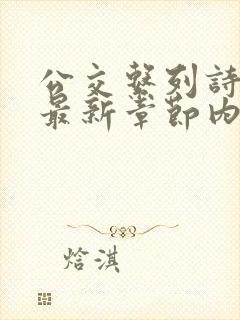 公交繫列詩
最新章節内
焓淇